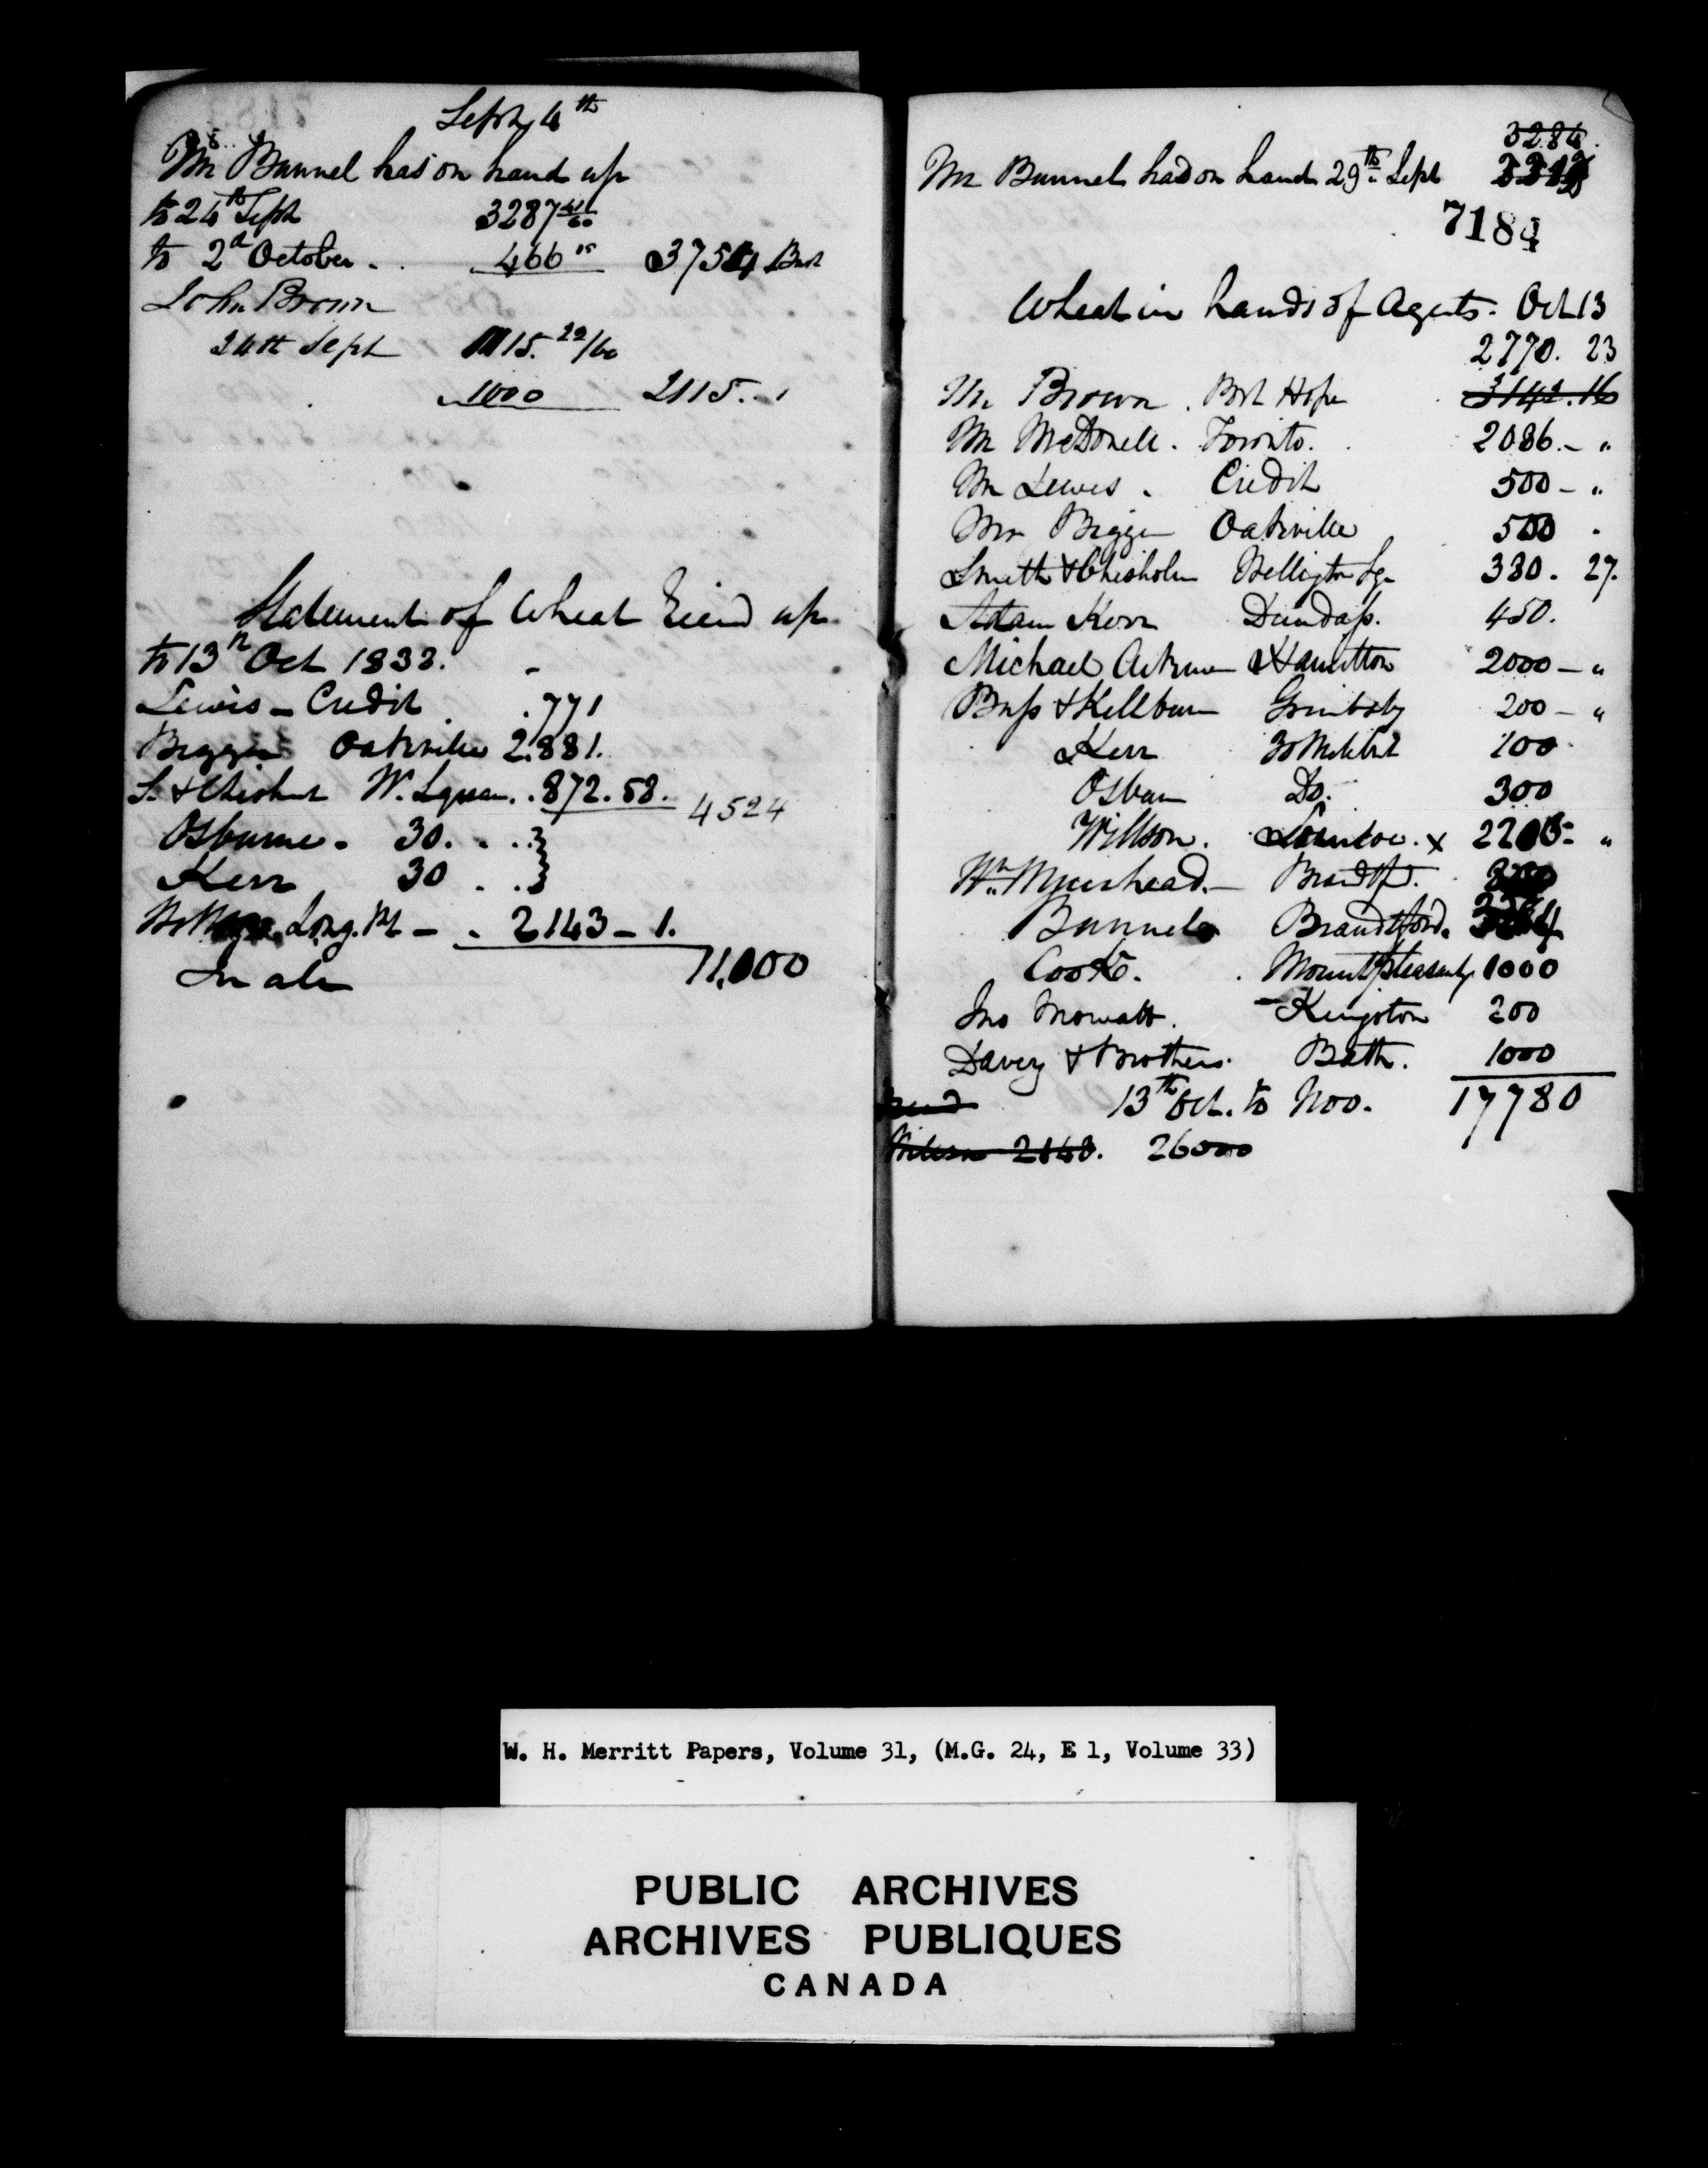 Sept 4th
Mr Bunnel has on hand up
to 24th Sept 3287 41/60
to 2d October . . 466 15 3754 Bush
John Brown
24th Sept 1115. 22/60
1000 2115. . 1
Statement of Wheat Recd up
to 13th Oct 1838.
Lewis - Credit . 771
Biggar Oakville 2.881.
S. & Chisholm W. Square . . 872.58. 4524
Osburne . 30. . . }
Kerr 30 . . }
Long. Pt - . 2143 - 1.
In all 11,000
3284.
Mr Bunnel had on hand 29th Sept
7184
Wheat in hands of Agents - Oct 13
2770. 23
Mr Brown . Port Hope 3142.16
Mr McDonell . Toronto. 2086. - "
Mr Lewis . Credit 500 - "
Mr Biggar Oakville 500 .
Smith & Chisholm Wellington Sqr 330. 27.
Adam Kerr Dundass. 450.
Michael Aikman Hamilton 2000 - "
Bass & Kellburn Grimbsby 200 - "
Kerr 30 100
Osburn Do. 300
Willson. x "
Wm Muirhead. - Brandtfd.
Bunnel Brandtford.
Cooke. . Mount Pleasant 1000
Jno Mowatt. Kingston 200
Davey & Brothers. Bath. 1000
13th Oct. to Nov. 17780
26000
W. H. Merritt Papers, Volume 31, (M.G. 24, E 1, Volume 33)
PUBLIC ARCHIVES
ARCHIVES PUBLIQUES
CANADA